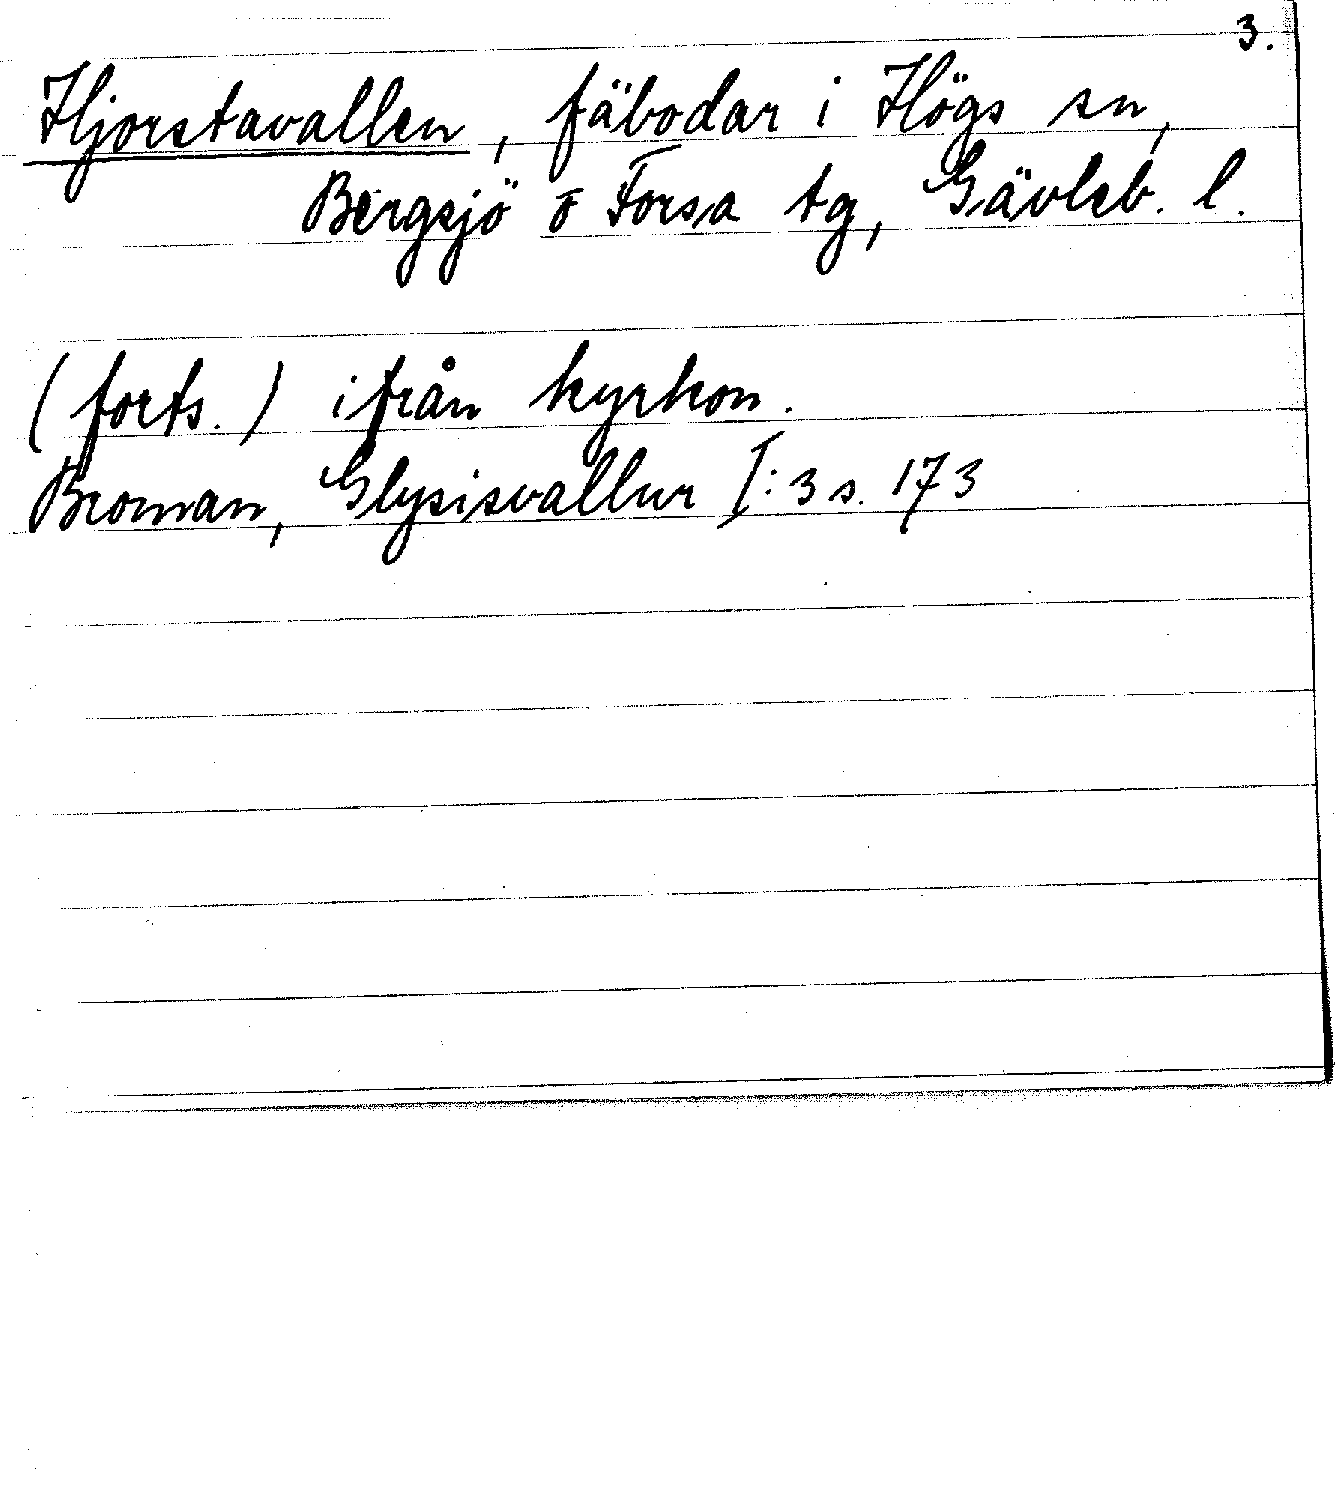 3.
Hjorstavallen, fäbodar i Högs sn,
Bergsjö o Forsa tg, Gävleb. l.
(forts.) ifrån kyrkon.
Broman, Glysisvallur I:3 s. 173